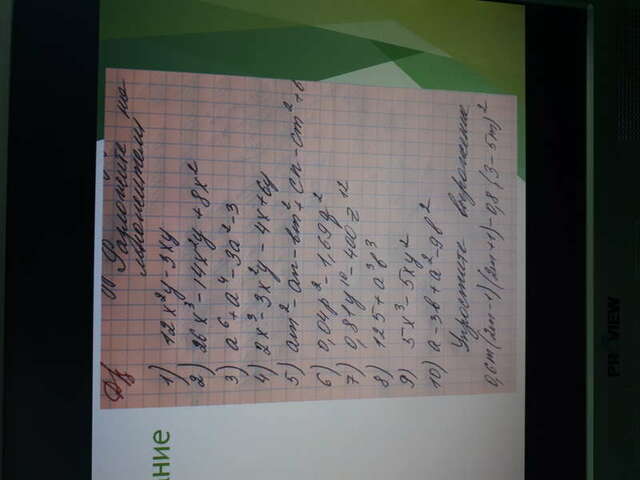 Разложите на
множители
1) 12x²y - 3xy
2) 26x³ - 14x²y + 8x²
3) a⁶ + a⁴ - 3a² - 3
4) 2x³ - 3x²y - 4x + 6y
5) am² - an - bm² + cn - cm² + b
6) 0,04p² - 1,69q²
7) 0,81y¹⁰ - 400z¹²
8) 125 + a³b³
9) 5x³ - 5xy²
10) a - 3b + a² - 9b²
Упростите выражение
0,6m(2m-1)(2m+1) - 0,8(3-5m)²
ание